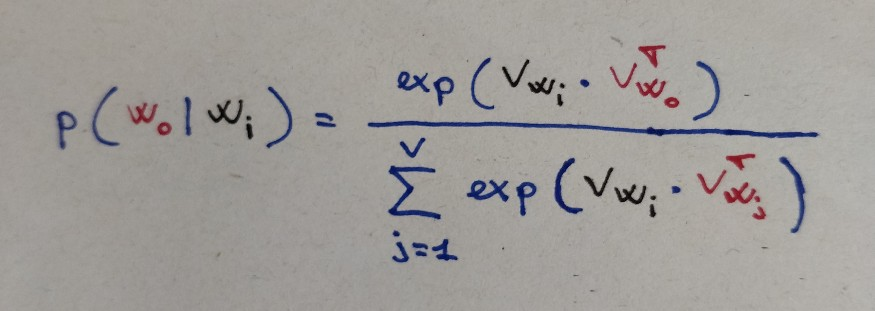 p(w₀|wᵢ) = exp(V_wᵢ · V_w₀ᵀ) / ∑ⱼ₌₁ⱽ exp(V_wᵢ · V_wⱼᵀ)